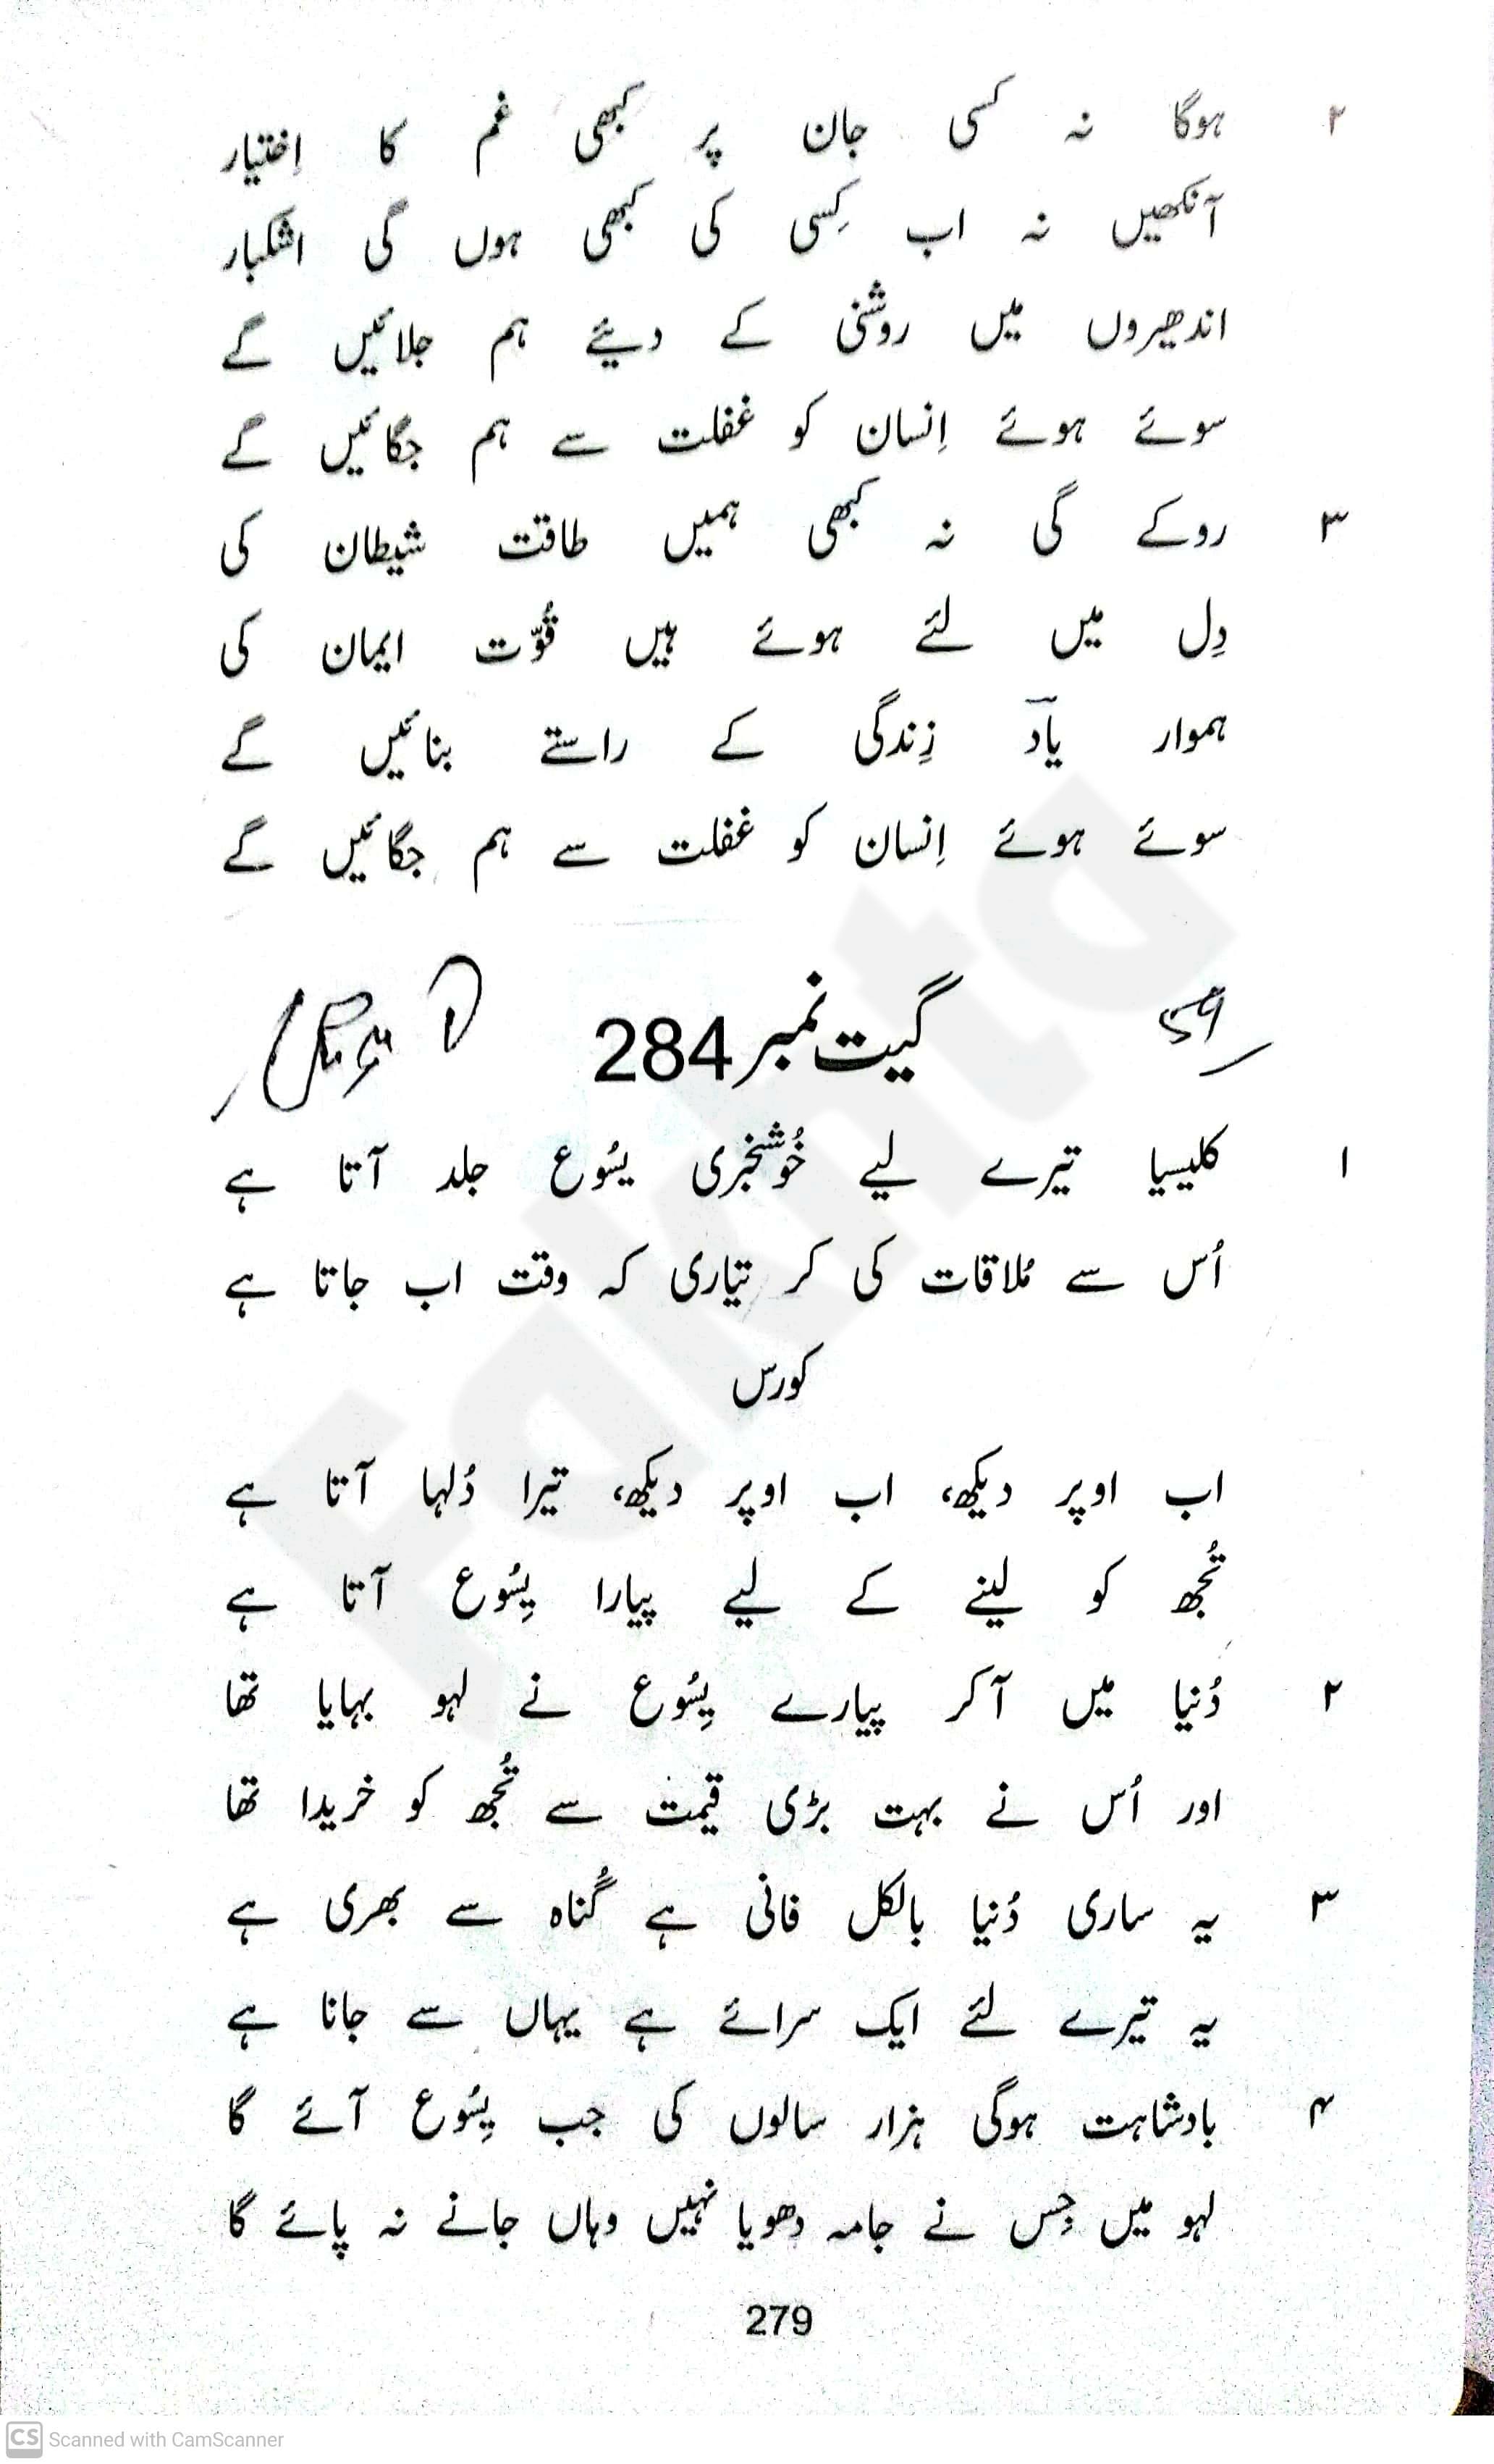 ۲ ہوگا نہ کسی جان پر کبھی غم کا اِختیار
آنکھیں نہ اب کِسی کی کبھی ہوں گی اشکبار
اندھیروں میں روشنی کے دیئے ہم جلائیں گے
سوئے ہوئے اِنسان کو غفلت سے ہم جگائیں گے
۳ روکے گی نہ کبھی ہمیں طاقت شیطان کی
دِل میں لئے ہوئے ہیں قُوّت ایمان کی
ہموار یادؔ زِندگی کے راستے بنائیں گے
سوئے ہوئے اِنسان کو غفلت سے ہم جگائیں گے
59 گیت نمبر 284
۱ کلیسیا تیرے لیے خُوشخبری یسُوع جلد آتا ہے
اُس سے مُلاقات کی کر تیاری کہ وقت اب جاتا ہے
کورس
اب اوپر دیکھ، اب اوپر دیکھ، تیرا دُلہا آتا ہے
تُجھ کو لینے کے لیے پیارا یِسُوع آتا ہے
۲ دُنیا میں آ کر پیارے یِسُوع نے لہو بہایا تھا
اور اُس نے بہت بڑی قیمت سے تُجھ کو خریدا تھا
۳ یہ ساری دُنیا بالکل فانی ہے گُناہ سے بھری ہے
یہ تیرے لئے ایک سرائے ہے یہاں سے جانا ہے
۴ بادشاہت ہوگی ہزار سالوں کی جب یِسُوع آئے گا
لہو میں جِس نے جامہ دھویا نہیں وہاں جانے نہ پائے گا
279
Fakhta
CS Scanned with CamScanner